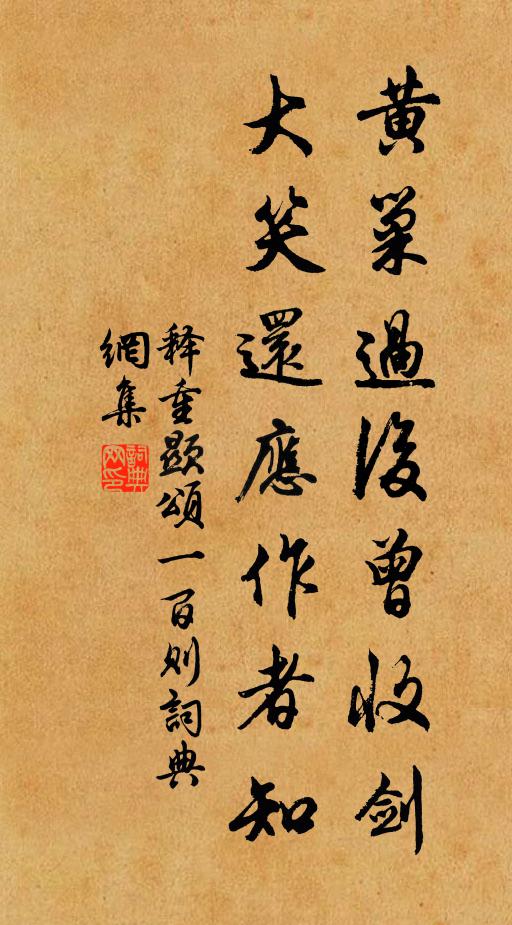 黃巢過後曾收劍
大笑還應作者知
释重顯頌一百则詞典
網集
詞典
网印